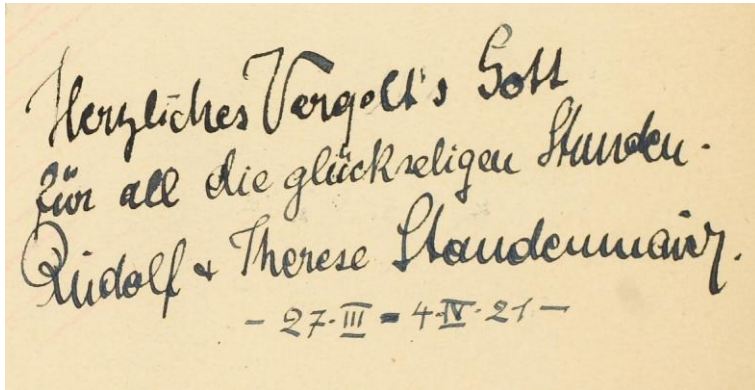 Herzliches Vergelt's Gott
für all die glückseligen Stunden.
Rudolf + Therese Staudenmaier.
- 27. III = 4. IV. 21 -